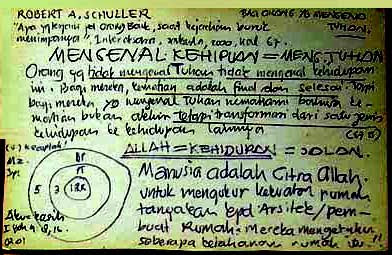 ROBERT A. SCHULLER
BAGI ORANG YG MENGENAL TUHAN.
"Apa yg terjadi pd Orang Baik, saat kejadian buruk
menimpanya", Interaksara, 2000, hal 67.
MENGENAL KEHIDUPAN = MENG. TUHAN
Orang yg tidak mengenal Tuhan tidak mengenal kehidupan
ini. Bagi mereka, kematian adalah final dan selesai. Tapi
bagi mereka yg mengenal Tuhan memahami bahwa ke-
matian bukan akhir tetapi transformasi dari satu jenis
kehidupan ke kehidupan lainnya
ALLAH = KEHIDUPAN =
Manusia adalah Citra Allah.
untuk mengukur kekuatan rumah
tanyakan kpd Arsitek/pem-
buat Rumah. Mereka mengetahui
seberapa ketahanan rumah itu"
5 3